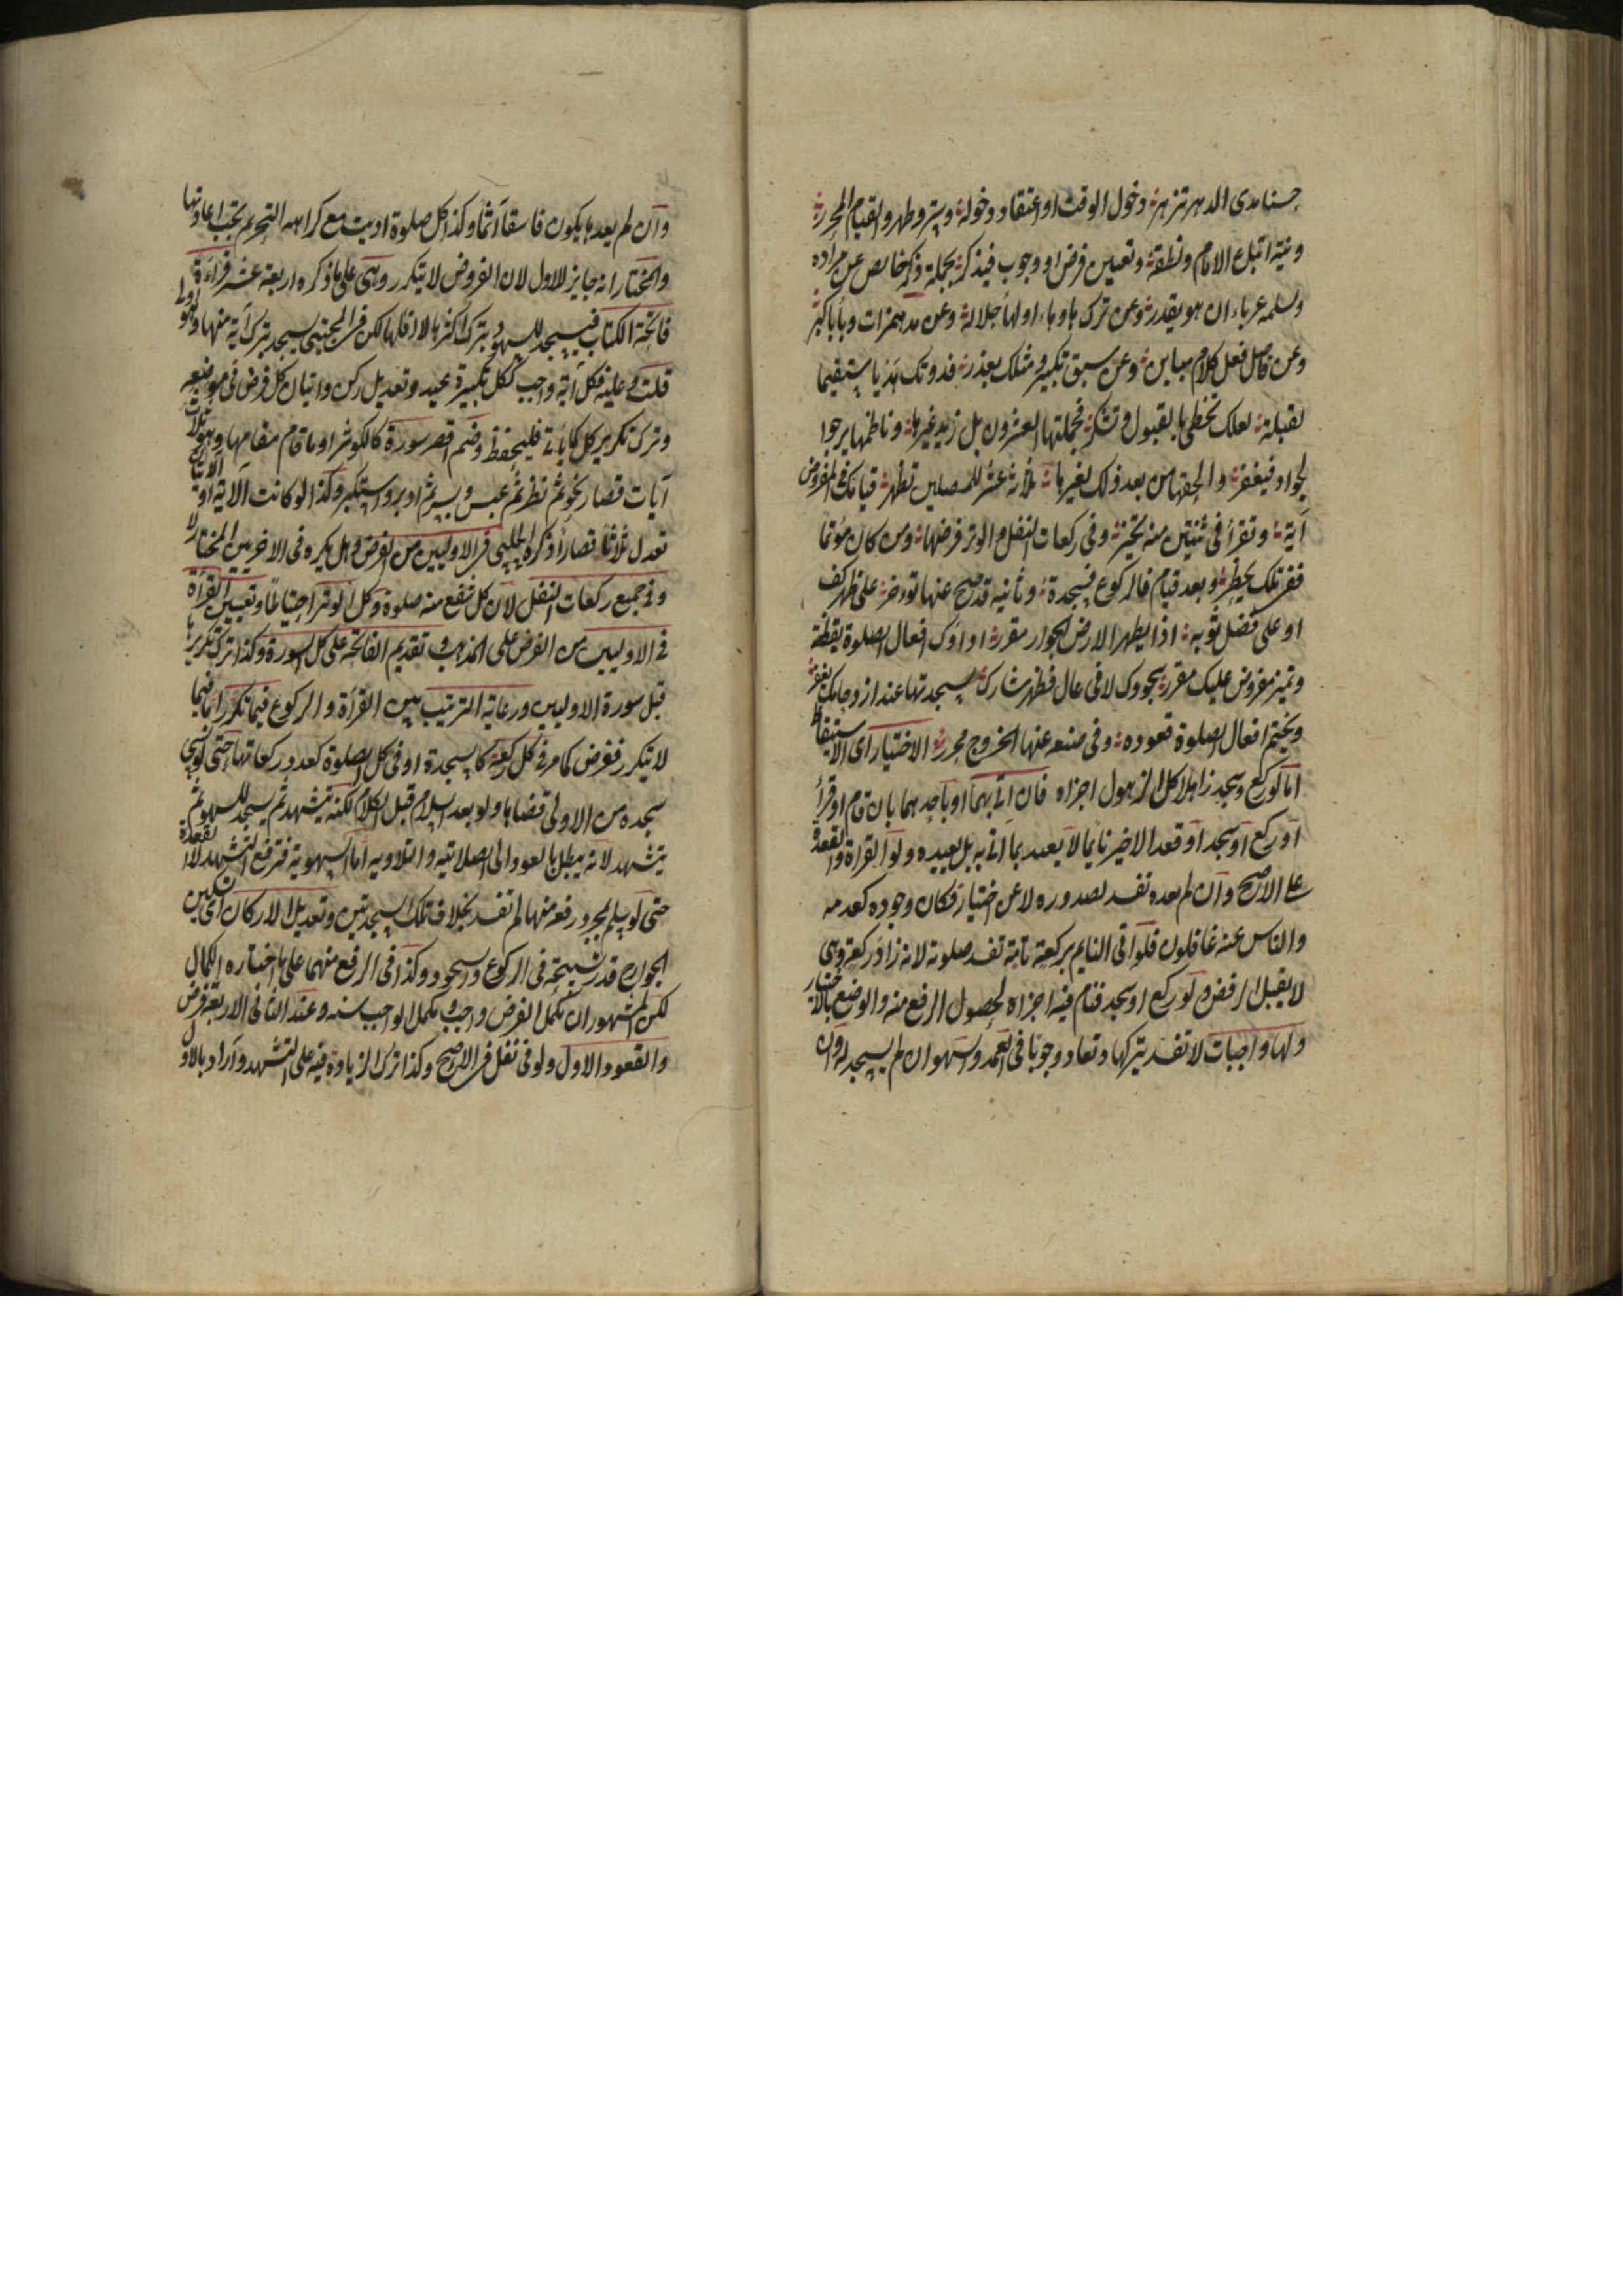 حسنا مدى الدهر تزهر دخول الوقت او اعتقاد دخوله وستر وطهر والقيام المحرر
ونية اتباع الامام ونطقه وتعيين فرض او وجوب فيذكر بجملة ذكر خالص عن مراده
وبسملة عرباء ان هو يقدر وعن ترك هاو هاء اولها جلالة وعن مد همزات وباء باكبر
وعن فاصل فعل كلام مباين وعن سبق تكبير ومثلك يعذر فدونك هذي مستقيما
لقبلة لعلك تحظى بالقبول وتشكر فجملتها العشرون بل زيد غيرها وناظمها يرجوا
الجواد فيغفر والحقها من بعد ذلك لغيرها ثلاثة عشر للمصلين تظهر قيامك في المفروض
آية وتقرأ في ثنتين منه تخير وفي ركعات النفل والوتر فرضها ومن كان مؤتما
فعن تلك يحظر وبعد قيام فالركوع فسجدة وثانية قد صح عنها تؤخر على ظهر كف
او على فضل ثوبه اذا يطهر الارض الجواز مقرر اداؤك افعال الصلوة يقظة
وتميز مفروض عليك مقرر سجودك لا في عال فظهر مشارك لسجدتها عند ازدحامك يغفر
ويختم افعال الصلوة قعوده وفي صنعه عنها الخروج محرر الاختيار اى الاستيقاظ
اما لو ركع وسجد ذاهلا كل الذهول اجزاه فان اتى بهما او باحدهما بان قام او قرأ
او ركع او سجد او قعد الاخير نائما لا يعتد بما اتى به بل يعيده ولو القراة والقعدة
على الاصح وان لم يعده تفسد لصدوره لا عن اختيار فكان وجوده كعدمه
والناس عنه غافلون فلو اتى النايم بركعة تامة تفسد صلوته لانه زاد ركعة وهى
لا يقبل الرفض ولو ركع او سجد فنام فيه اجزاه لحصول الرفع منه والوضع بالاختيار
ولها واجبات لا تفسد بتركها وتعاد وجوبا في العمد والسهو ان لم يسجد له وان
وان لم يعدها يكون فاسقا آثما وكذا كل صلوة اديت مع كراهه التحريم تجب اعادتها
والمختار انه جابر للاول لان الفرض لا يتكرر وهى على ما ذكره اربعة عشر قراءة
فاتحة الكتاب فيسجد للسهو بترك اكثرها لا اقلها لكن في المجتبى يسجد بترك آية منها وهو اولى
قلت وعليه فكل آية واجب ككل تكبيرة عيد وتعديل ركن واتيان كل فرض في موضعه
وترك تكرير كل كما ياتى فليحفظ وضم اقصر سورة كالكوثر او ما قام مقامها وهو ثلاث
آيات قصار نحو ثم نظر ثم عبس وبسر ثم ادبر واستكبر وكذا لو كانت الآية او الآيتان
تعدل ثلاثا قصارا ذكره الحلبي في الاوليين من الفرض وهل يكره في الاخريين المختار لا
وفي جميع ركعات النفل لان كل شفع منه صلوة وكل الوتر احتياطا وتعيين القراة
في الاوليين من الفرض على المذهب وتقديم الفاتحة على كل السورة وكذا ترك تكريرها
قبل سورة الاوليين ورعاية الترتيب بين القرأة والركوع فيما تكرر اما فيما
لا يتكرر ففرض كما مر في كل ركعة كالسجدة او في كل الصلوة كعدد ركعاتها حتى لو نسى
سجدة من الاولى قضاها ولو بعد السلام قبل الكلام لكنه يتشهد ثم يسجد للسهو ثم
يتشهد لانه يبطل بالعود الى الصلاتية والتلاوية اما السهوية فترفع التشهد لا القعدة
حتى لو سلم بمجرد رفعه منها لم تفسد بخلاف تلك السجدتين وتعديل الاركان اى تسكين
الجوارح قدر تسبيحة في الركوع والسجود وكذا في الرفع منهما على ما اختاره الكمال
لكن المشهور ان مكمل الفرض واجب ومكمل الواجب سنه وعند الثاني الاربعة فرض
والقعود الاول ولو في نفل في الاصح وكذا ترك الزيادة فيه على التشهد واراد بالاول